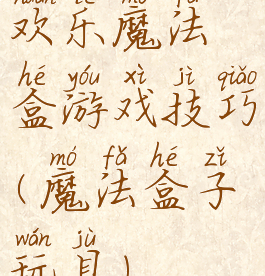 huān lè mó fǎ
欢乐魔法
hé yóu xì jì qiǎo
盒游戏技巧
mó fǎ hé zǐ
(魔法盒子
wán jù
玩具)